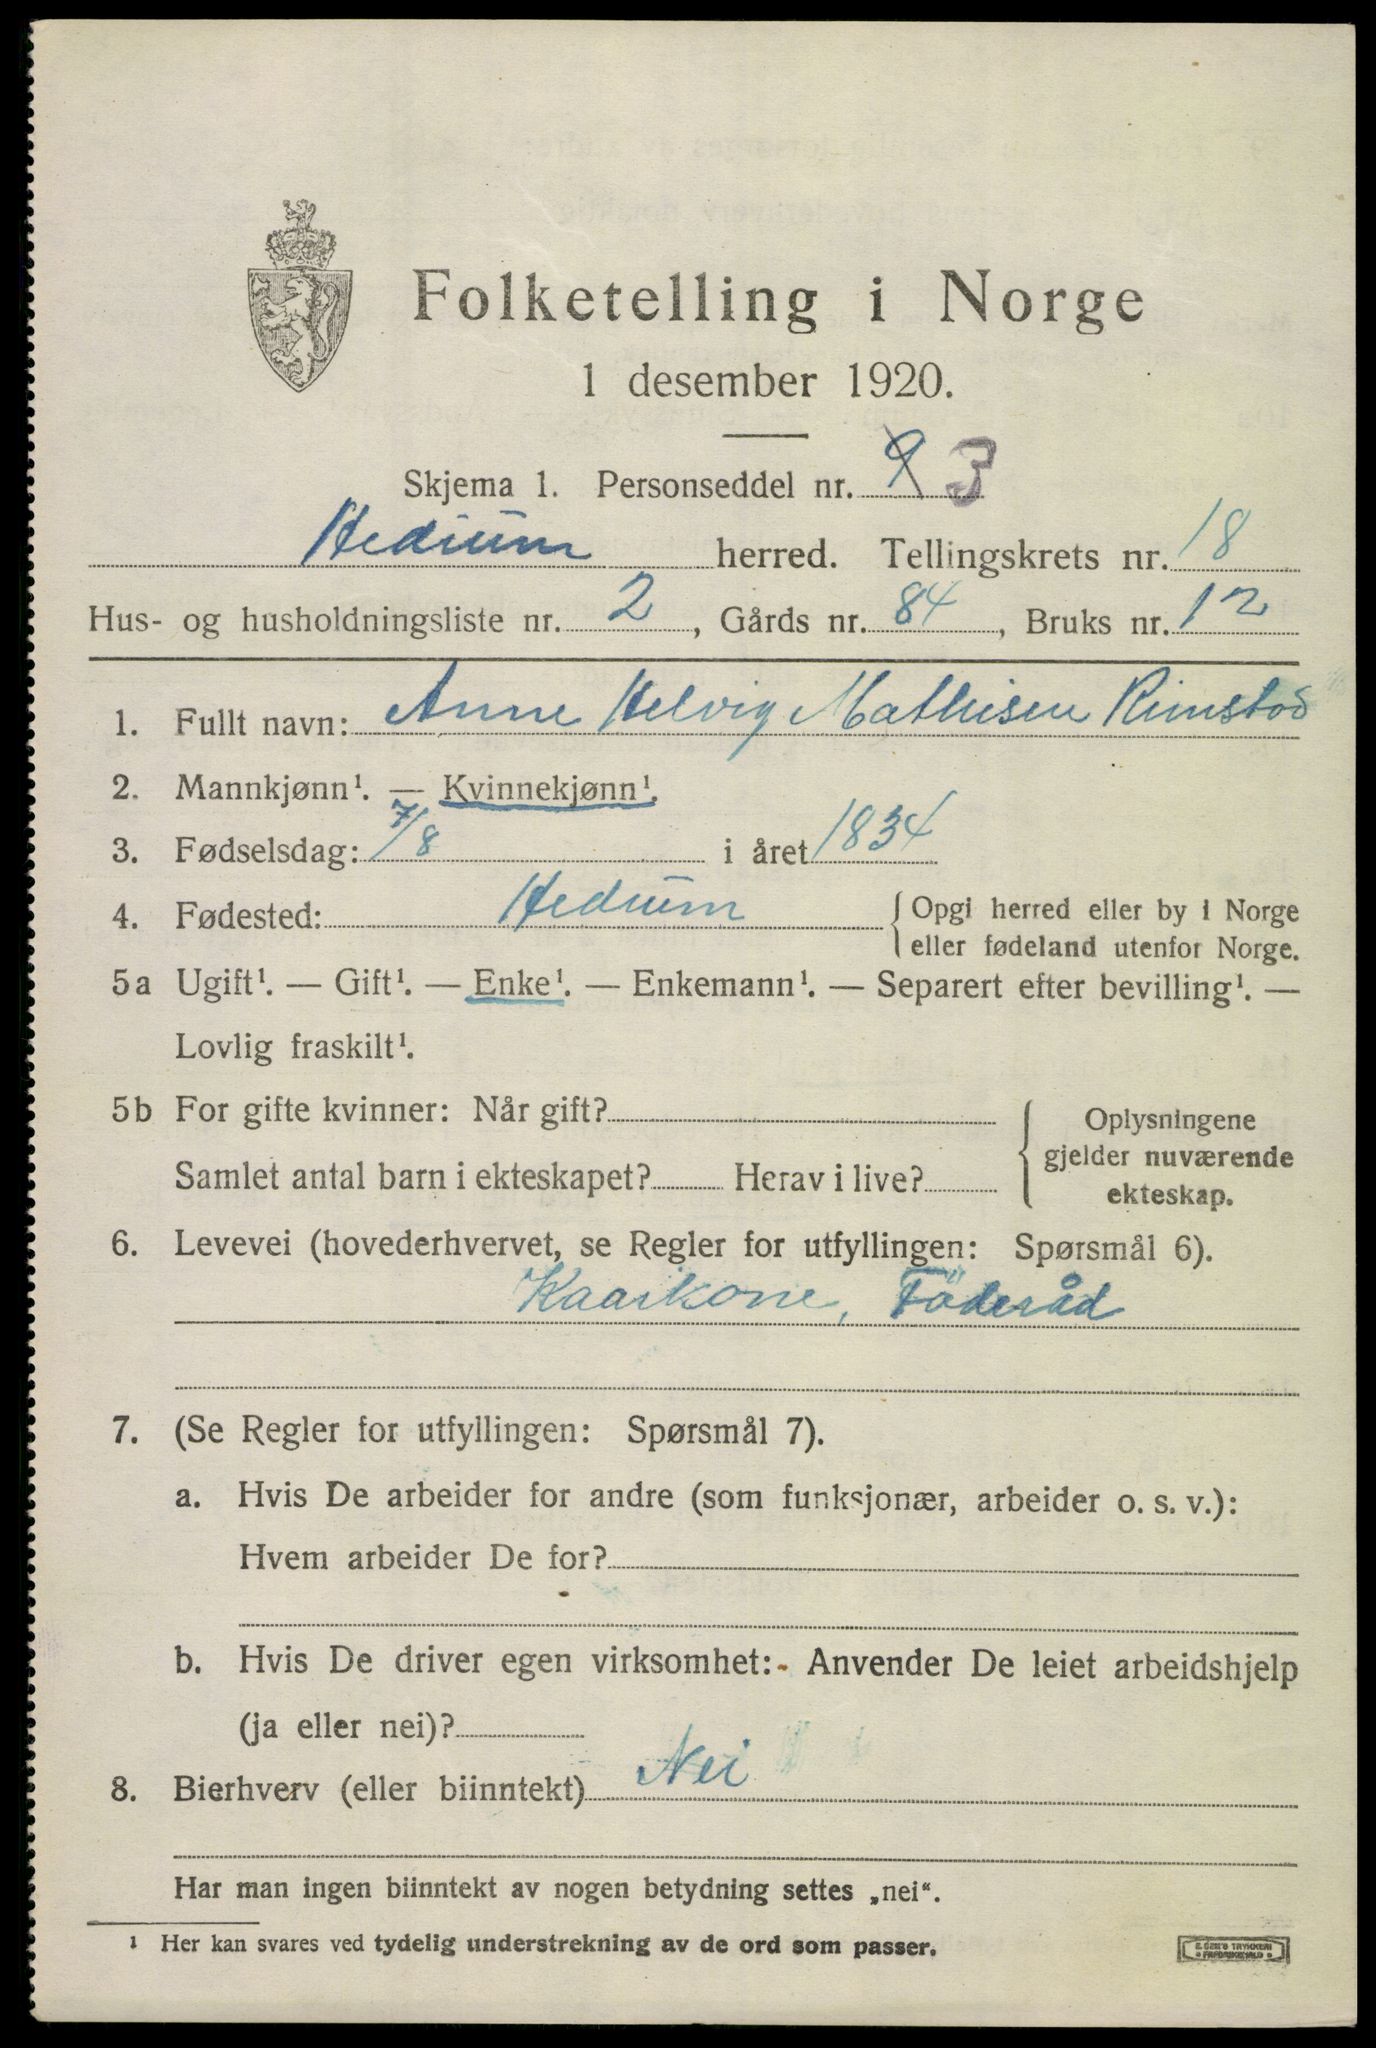 Folketelling i Norge
1 desember 1920.
Skjema 1. Personseddel nr. 9 3
Hedrum herred. Tellingskrets nr. 18
Hus- og husholdningsliste nr. 2, Gårds nr. 84, Bruks nr. 12
1. Fullt navn: Anne Helvig Mathisen Rimstad
2. Mannkjønn¹. — Kvinnekjønn¹.
3. Fødselsdag: 7/8 i året 1834
4. Fødested: Hedrum { Opgi herred eller by i Norge
eller fødeland utenfor Norge.
5a Ugift¹. — Gift¹. — Enke¹. — Enkemann¹. — Separert efter bevilling¹. —
Lovlig fraskilt¹.
5b For gifte kvinner: Når gift?
Samlet antal barn i ekteskapet? Herav i live?
Oplysningene
gjelder nuværende
ekteskap.
6. Levevei (hovederhvervet, se Regler for utfyllingen: Spørsmål 6).
Kaarkone, Föderåd
7. (Se Regler for utfyllingen: Spørsmål 7).
a. Hvis De arbeider for andre (som funksjonær, arbeider o. s. v.):
Hvem arbeider De for?
b. Hvis De driver egen virksomhet: Anvender De leiet arbeidshjelp
(ja eller nei)?
8. Bierhverv (eller biinntekt) Nei
Har man ingen biinntekt av nogen betydning settes „nei“.
¹ Her kan svares ved tydelig understrekning av de ord som passer.